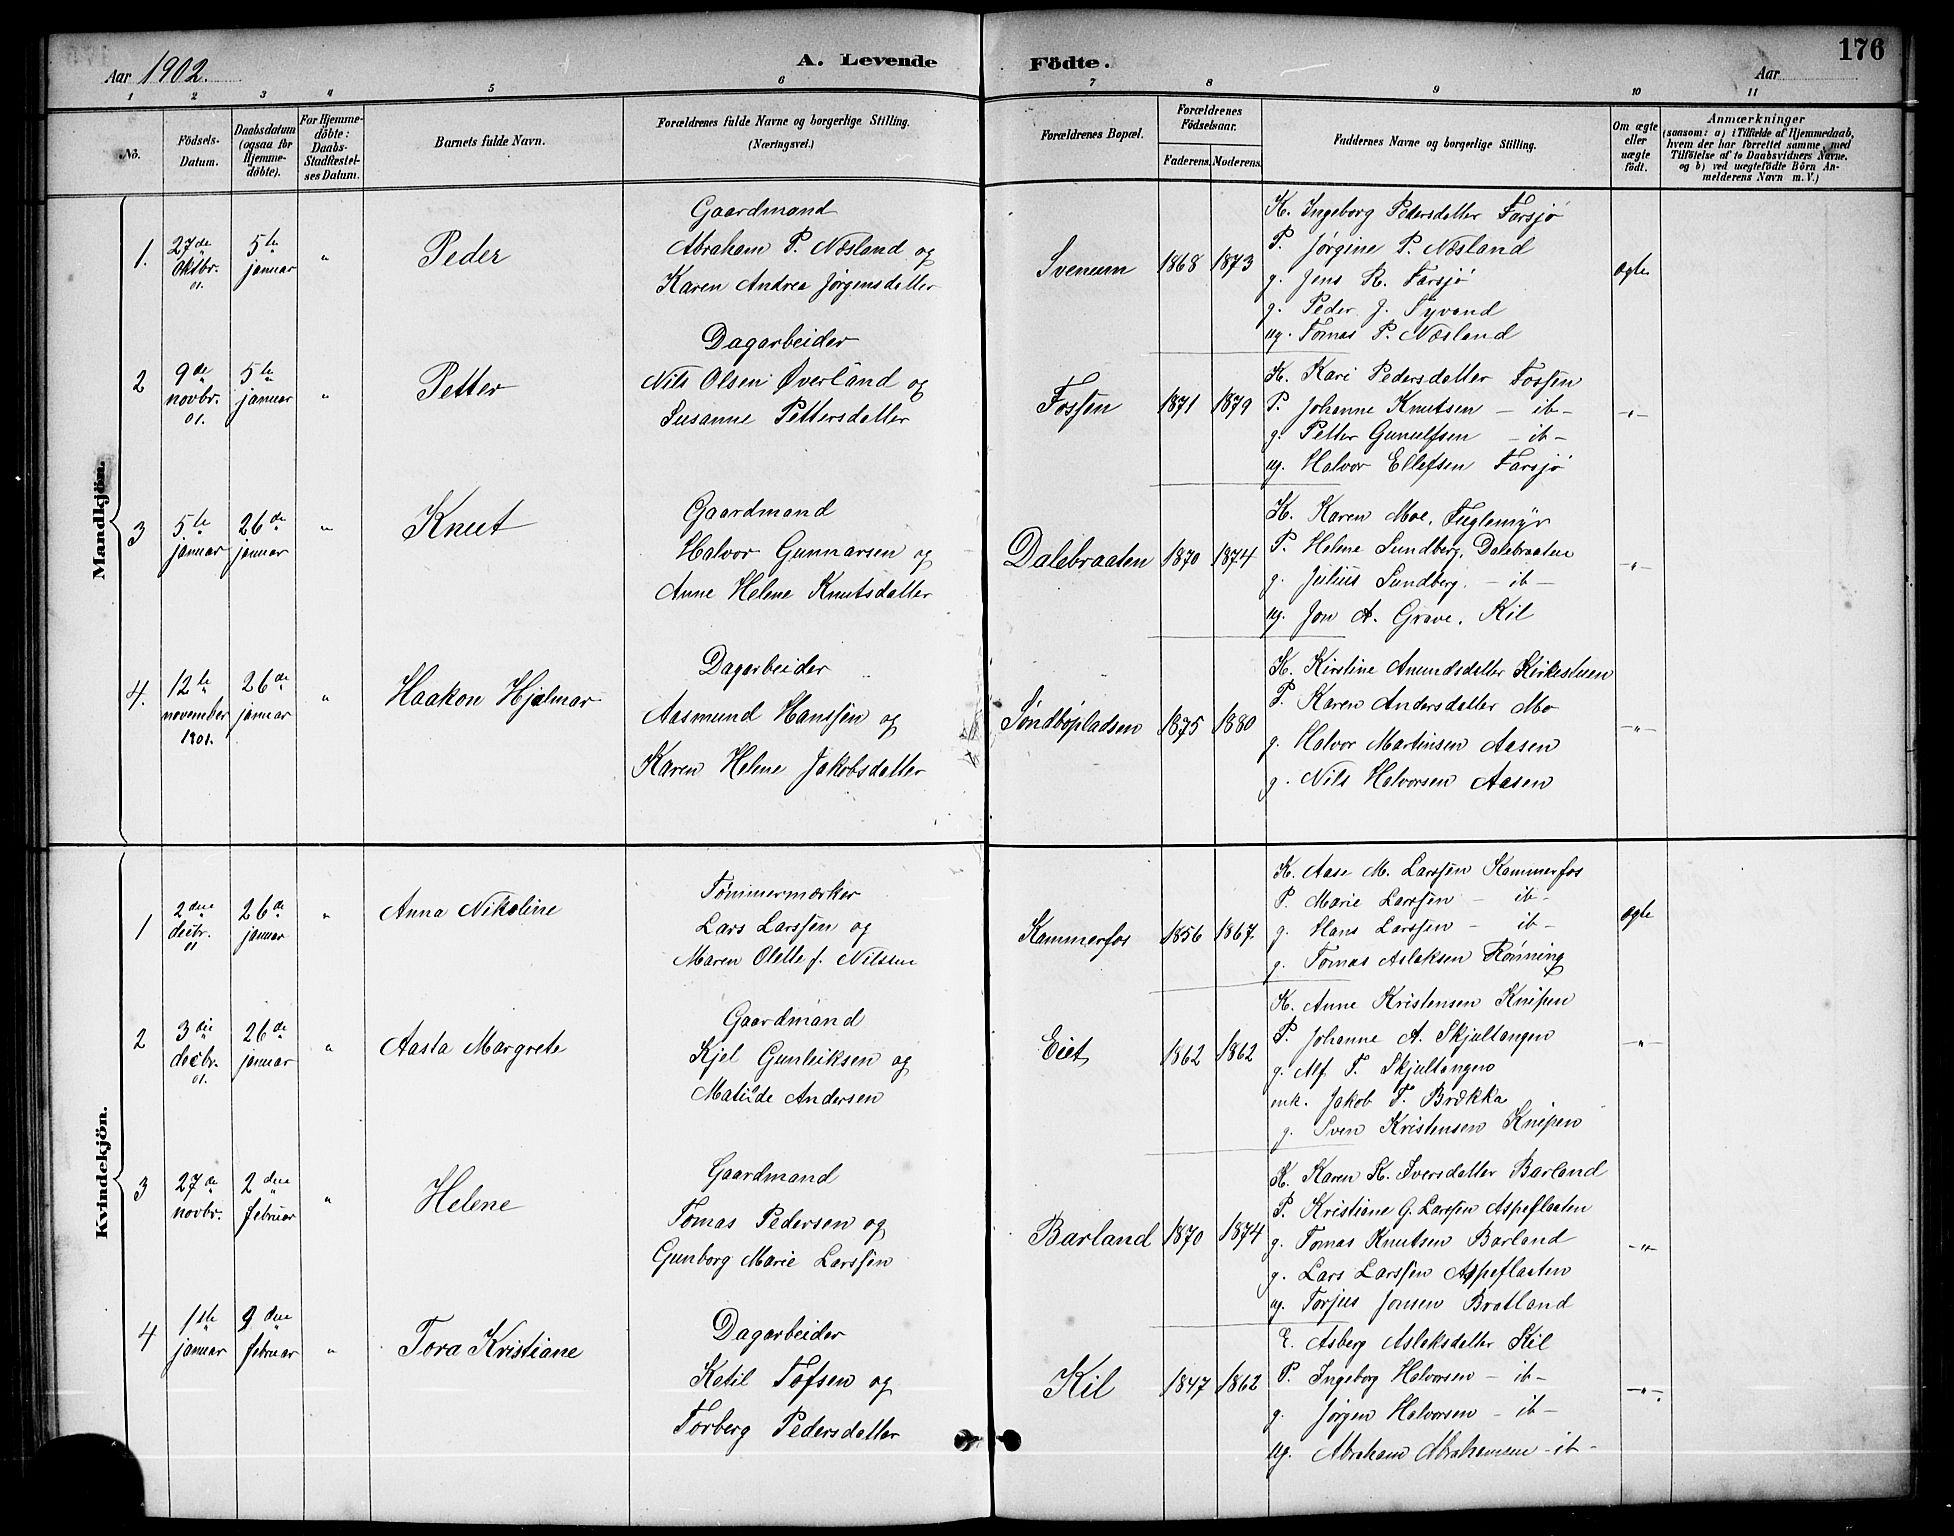 176
Aar 1902.
A. Levende Födte.
Aar
1 2 3 4 5 6 7 8 9 10 11
No.
Födsels-Datum.
Daabsdatum (ogsaa for Hjemmedöbte).
For Hjemmedöbte: Daabs-Stadfestelses Datum.
Barnets fulde Navn.
Forældrenes fulde Navne og borgerlige Stilling.
(Næringsvei.)
Forældrenes Bopæl.
Forældrenes Födselsaar.
Faderens. Moderens.
Faddernes Navne og borgerlige Stilling.
Om ægte eller uægte födt.
Anmærkninger
(saasom: a) i Tilfælde af Hjemmedaab,
hvem der har forrettet samme, med
Tilföielse af to Daabsvidners Navne,
og b) ved uægtefödte Börn An-
melderens Navn m. V.)
Mandkjön.
1. 27de oktbr. 01. 5te januar " Peder
Gaardmand
Abraham P. Næsland og
Karen Andrea Jørgensdatter
Sveinum 1868 1873
K. Ingeborg Pedersdatter Farsjø
P. Jørgine P. Næsland
g. Jens R. Farsjø
g. Peder J. Tyvand
ug. Tomas P. Næsland
ægte
2 9de novbr. 01. 5te januar " Petter
Dagarbeider
Nils Olsen Øverland og
Susanne Pettersdatter
Fossen 1871 1879
K. Kari Pedersdatter Fossen
P. Johanne Knutsen - ib-
g. Petter Gunulfsen - ib-
ug. Halvor Ellefsen Farsjø
-"-
3 5te januar 26de januar " Knut
Gaardmand
Halvor Gunnarsen og
Anne Helene Knutsdatter
Dalebraaten 1870 1874
K. Karen Moe, Fuglemyr
P. Helene Sundberg, Dalebraaten
g. Julius Sundberg. - ib-
ug. Jon A. Grave, Kil
-"-
4. 12te november 1901. 26de januar " Haakon Hjalmar
Dagarbeider
Aasmund Hanssen og
Karen Helene Jakobsdatter
Søndbøpladsen 1875 1880
K. Kirstine Amundsdatter Kirkestuen
P. Karen Andersdatter Mo
g. Halvor Martinsen Aasen
g. Nils Halvorsen Aasen
-"-
Kvindekjön.
1 2den decbr. 01 26de januar " Anna Nikoline
Tømmermærker
Lars Larssen og
Maren Olette f. Nilssen
Kammerfos 1856 1867.
K. Aase M. Larssen Kammerfos
P. Marie Larssen - ib-
g. Hans Larssen - ib-
g. Tomas Aslaksen Rønning
ægte
2 3die decbr. 01. 26de januar " Aasta Margrete
Gaardmand
Kjel Gunleiksen og
Matilde Andersen
Eiet 1862 1862
K. Anne Kristensen Knipen
P. Johanne A. Skjultangen
g. Alf T. Skjultangen
enk. Jakob T. Brækka
g. Sven Kristensen Knipen
-"-
3 27de novbr. 2den februar " Helene
Gaardmand
Tomas Pedersen og
Gunborg Marie Larssen
Barland 1870 1874
K. Karen K. Iversdatter Barland
P. Kristiane G. Larssen Aspeflaaten
g. Tomas Knutsen Barland
g. Lars Larssen Aspeflaaten
ug. Torjus Jonsen Bratland
-"-
4 1ste januar 9den februar " Tora Kristiane
Dagarbeider
Ketil Tofsen og
Torberg Pedersdatter
Kil 1847 1862
E. Asberg Aslaksdatter Kil
P. Ingeborg Halvorsen - ib-
g. Jørgen Halvorsen - ib-
ug. Abraham Abrahamsen - ib-
-"-.